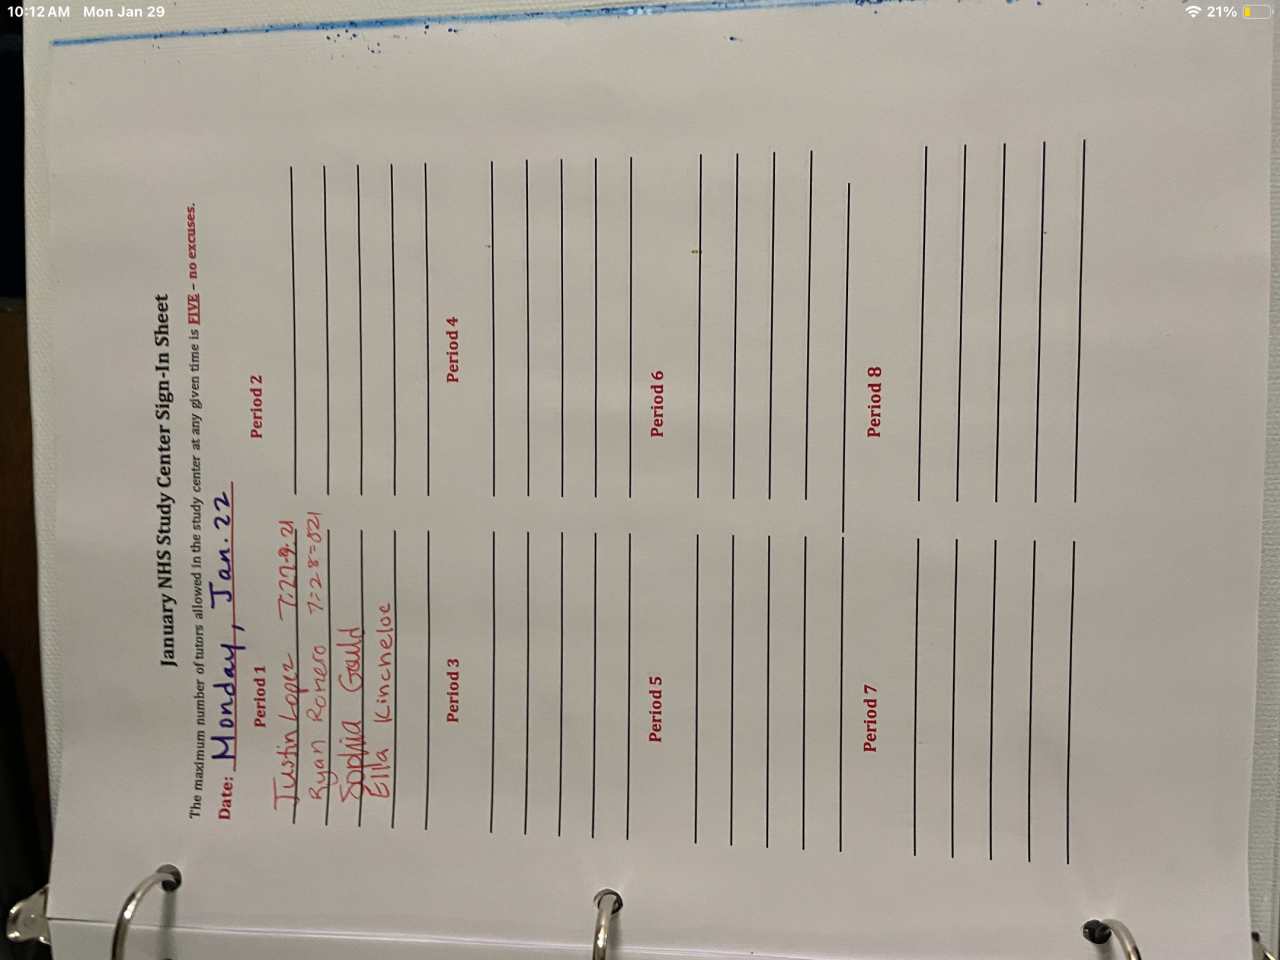 10:12 AM Mon Jan 29
21%
January NHS Study Center Sign-In Sheet
The maximum number of tutors allowed in the study center at any given time is FIVE – no excuses.
Date: Monday, Jan. 22
Period 1
Justin Lopez 7:27-9:21
Ryan Romero 7:28-821
Sophia Gould
Ella Kincheloe
Period 2
Period 3
Period 4
Period 5
Period 6
Period 7
Period 8